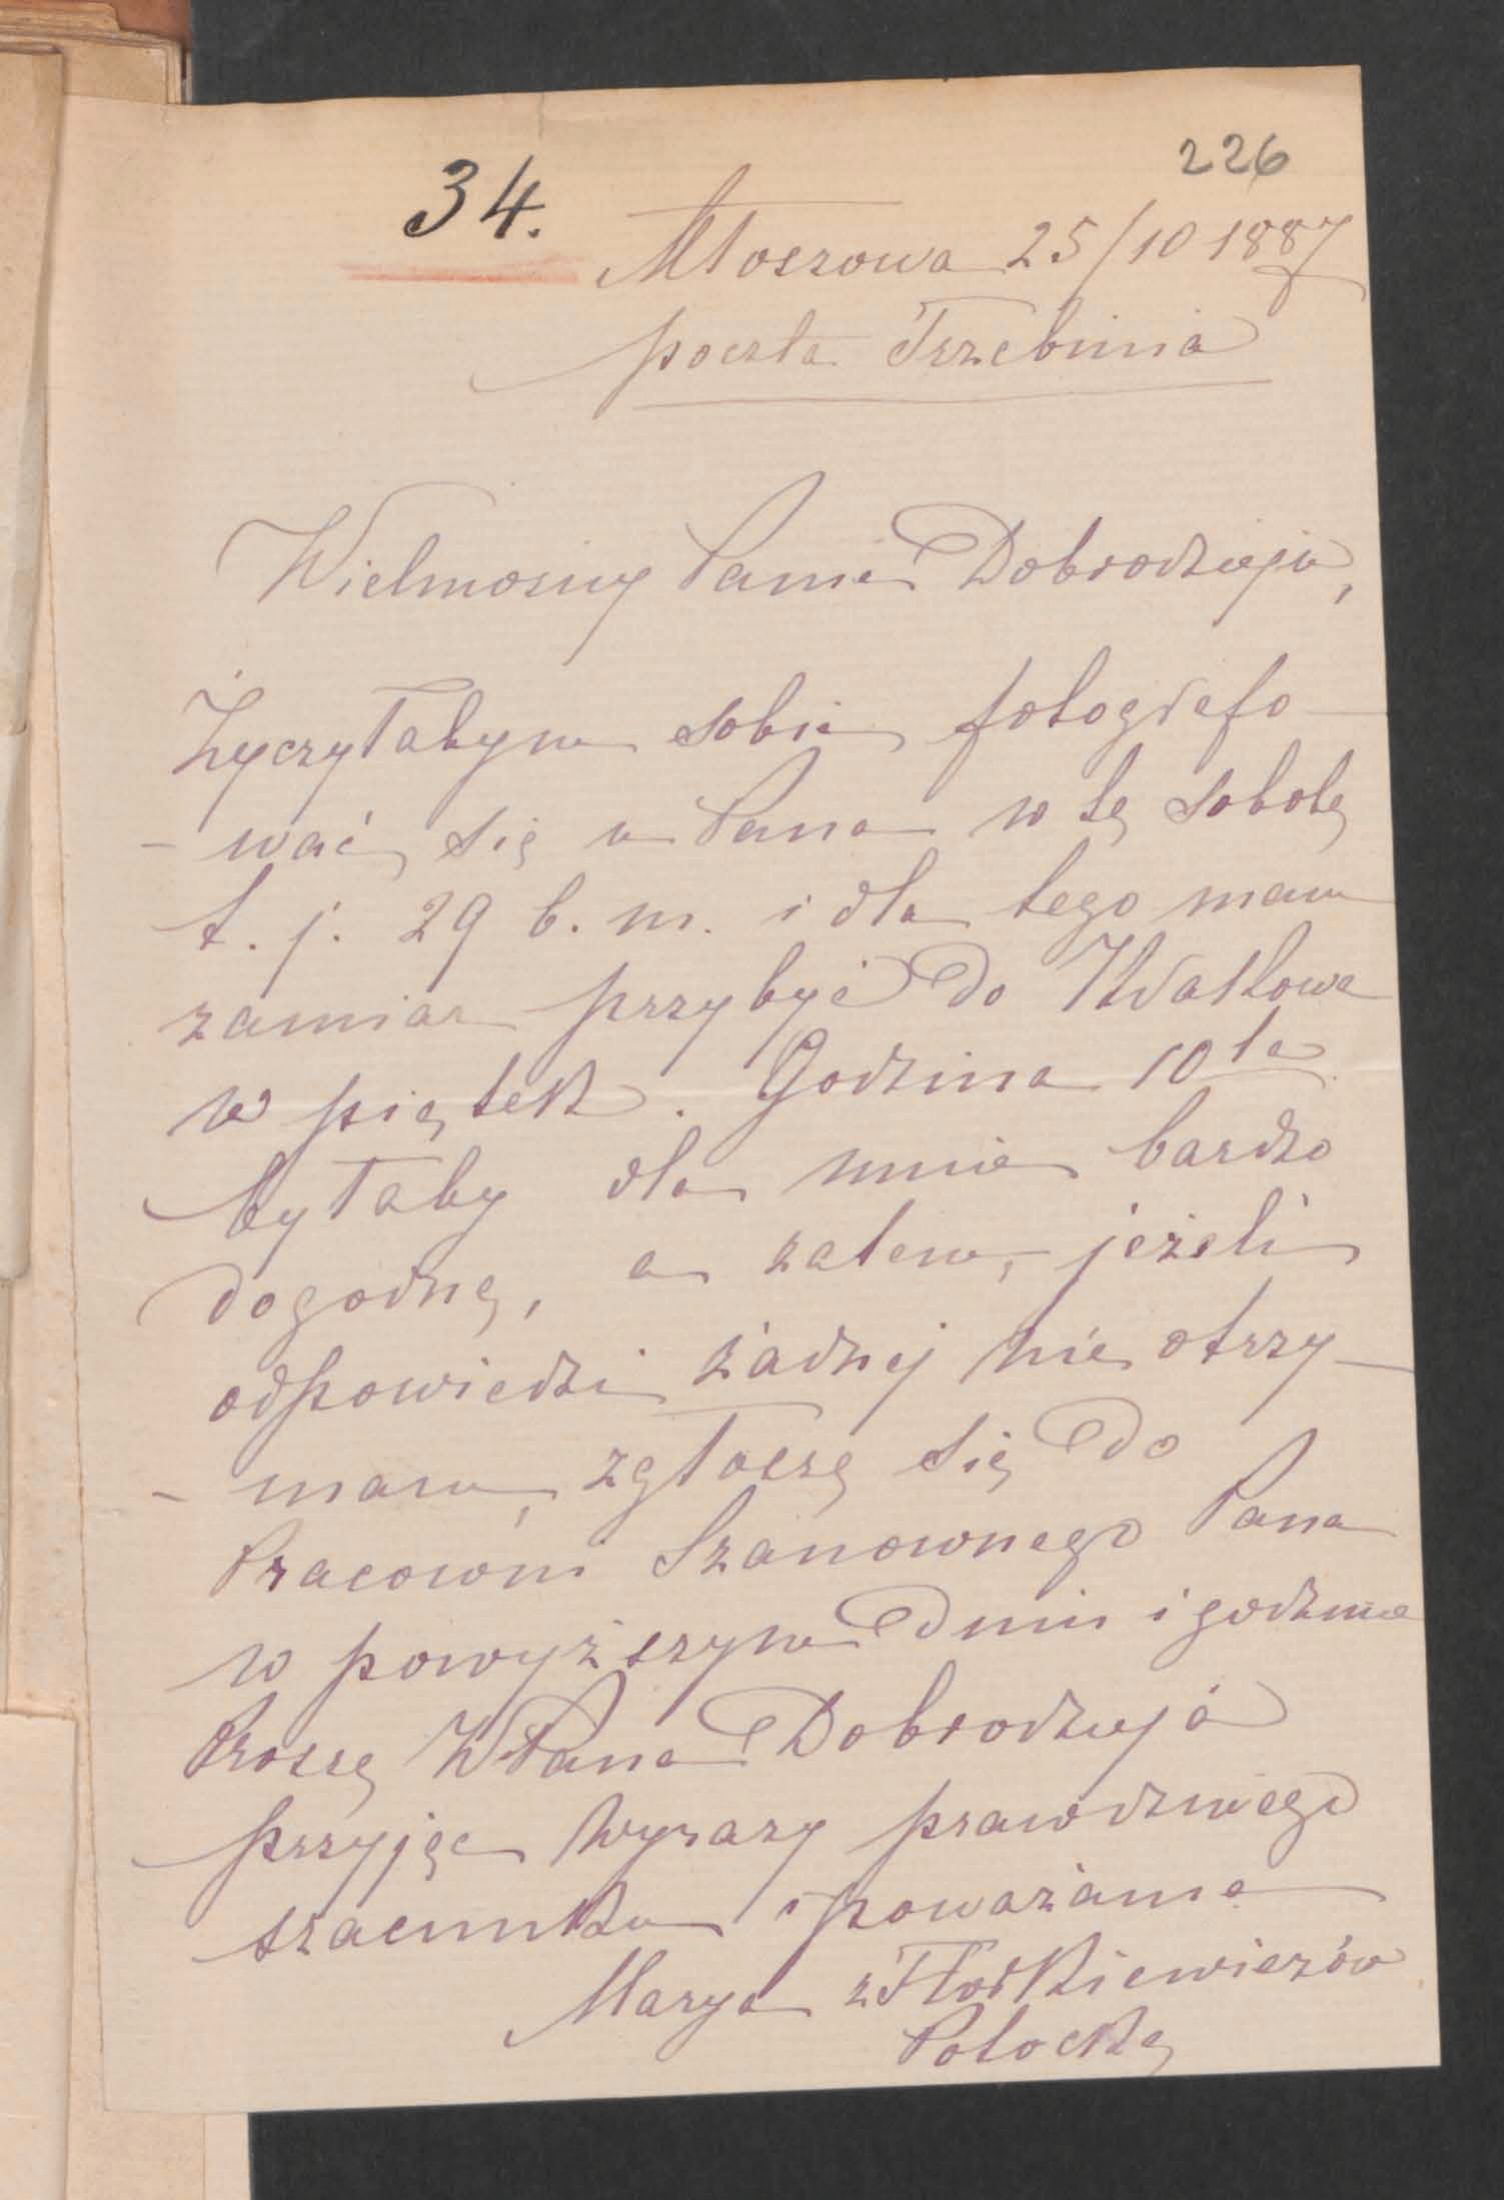 226
34.
Młoszowa 25/10 1887
poczta Trzebinia
Wielmożny Panie Dobrodzieju,
Życzyłabym sobie fotografo-
- wać się u Pana w tę sobotę
t. j. 29 b. m. i dla tego mam
zamiar przybyć do Krakowa
w piątek. Godzina 10ta
byłaby dla mnie bardzo
dogodną, a zatem, jeżeli
odpowiedzi żadnej nie otrzy-
- mam, zgłoszę się do
Pracowni Szanownego Pana
w powyższym dniu i godzinie
Proszę WPana Dobrodzieja
przyjąć wyrazy prawdziwego
szacunku i poważania
Marya z Florkiewiczów
Potocka